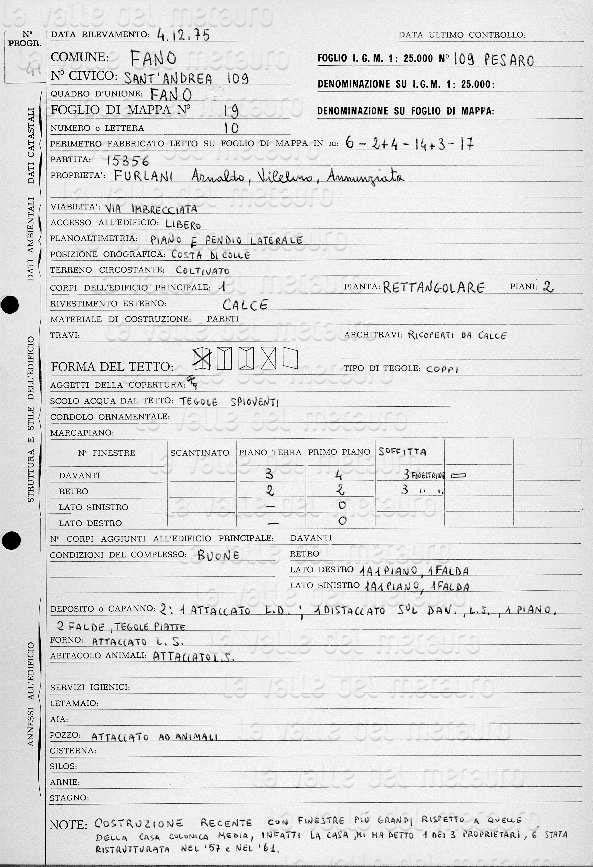 N° PROGR.
DATA RILEVAMENTO: 4.12.75 DATA ULTIMO CONTROLLO:
COMUNE: FANO FOGLIO I. G. M. 1: 25.000 N° 109 PESARO
N° CIVICO: SANT'ANDREA 109 DENOMINAZIONE SU I.G.M. 1: 25.000:
QUADRO D'UNIONE: FANO
FOGLIO DI MAPPA N° 19 DENOMINAZIONE SU FOGLIO DI MAPPA:
NUMERO o LETTERA 10
PERIMETRO FABBRICATO LETTO SU FOGLIO DI MAPPA IN m: 6-2+4-14+3-17
PARTITA: 15356
PROPRIETA': FURLANI Arnaldo, Annunziata
VIABILITA': VIA IMBRECCIATA
ACCESSO ALL'EDIFICIO: LIBERO
PLANOALTIMETRIA: PIANO E PENDIO LATERALE
POSIZIONE OROGRAFICA: COSTA DI COLLE
TERRENO CIRCOSTANTE: COLTIVATO
CORPI DELL'EDIFICIO PRINCIPALE: 1 PIANTA: RETTANGOLARE PIANI: 2
RIVESTIMENTO ESTERNO: CALCE
MATERIALE DI COSTRUZIONE: PARETI
TRAVI: ARCHITRAVI: RICOPERTI DA CALCE
FORMA DEL TETTO: TIPO DI TEGOLE: COPPI
AGGETTI DELLA COPERTURA:
SCOLO ACQUA DAL TETTO: TEGOLE SPIOVENTI
CORDOLO ORNAMENTALE:
MARCAPIANO:
N° FINESTRE SCANTINATO PIANO TERRA PRIMO PIANO SOFFITTA
DAVANTI 3 4 3 FINESTRINE
RETRO 2 2 3 " "
LATO SINISTRO - 0
LATO DESTRO - 0
N° CORPI AGGIUNTI ALL'EDIFICIO PRINCIPALE: DAVANTI
CONDIZIONI DEL COMPLESSO: BUONE RETRO
LATO DESTRO 1 A 1 PIANO, 1 FALDA
LATO SINISTRO 1 A 1 PIANO, 1 FALDA
DEPOSITO o CAPANNO: 2: 1 ATTACCATO L.D.; 1 DISTACCATO SUL DAV., L.S., 1 PIANO,
2 FALDE, TEGOLE PIATTE
FORNO: ATTACCATO L.S.
ABITACOLO ANIMALI: ATTACCATO L.S.
SERVIZI IGIENICI:
LETAMAIO:
AIA:
POZZO: ATTACCATO AD ANIMALI
CISTERNA:
SILOS:
ARNIE:
STAGNO:
NOTE: COSTRUZIONE RECENTE CON FINESTRE PIÙ GRANDI RISPETTO A QUELLE
DELLA CASA COLONICA MEDIA, INFATTI LA CASA, MI HA DETTO 1 DEI 3 PROPRIETARI, È STATA
RISTRUTTURATA NEL '57 e NEL '61.
DATI CATASTALI
DATI AMBIENTALI
STRUTTURA E STILE DELL'EDIFICIO
ANNESSI ALL'EDIFICIO
la valle del metauro